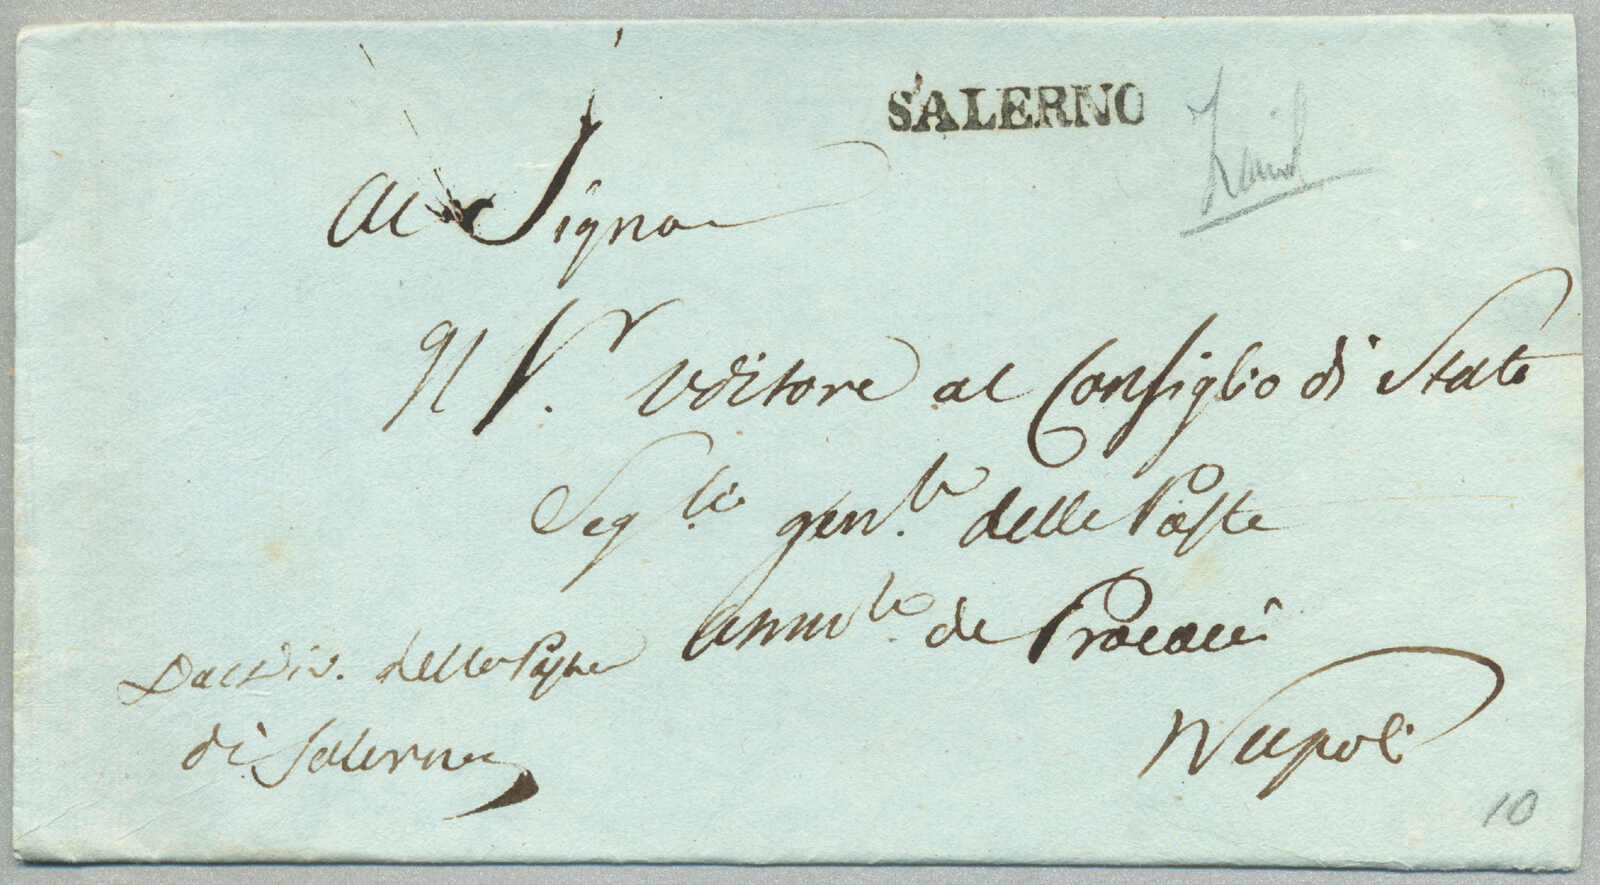 SALERNO
Al Signor
Il Sr. Uditore al Consiglio di Stato
Seg.rio gen.le delle Poste
de Procacci
Dal Dir. delle Poste
di Salerno
Napoli
10